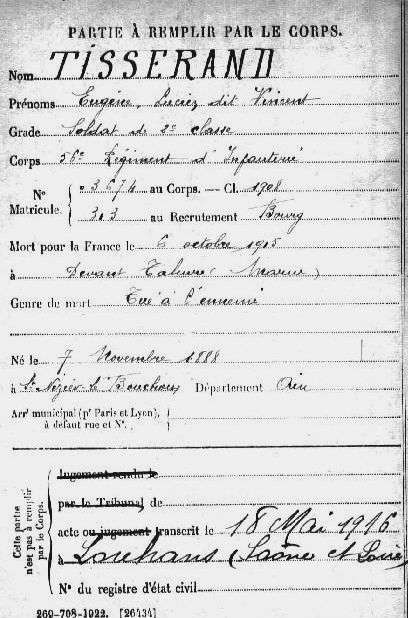 PARTIE À REMPLIR PAR LE CORPS.
Nom TISSERAND
Prénoms Eugène, Lucien dit Vincent
Grade Soldat de 2e classe
Corps 56e Régiment d'Infanterie
N° Matricule. { 03674 au Corps. — Cl. 1908
313 au Recrutement Bourg
Mort pour la France le 6 octobre 1915
à Devant Tahure (Marne)
Genre de mort Tué à l'ennemi
Né le 7 Novembre 1888
à St Nizier le Bouchoux Département Ain
Arrt municipal (pr Paris et Lyon),
à défaut rue et N°.
Cette partie n'est pas à remplir par le Corps.
Jugement rendu le
par le Tribunal de
acte ou jugement transcrit le 18 Mai 1916
à Louhans (Saône et Loire)
N° du registre d'état civil
269-708-1922. [26434]